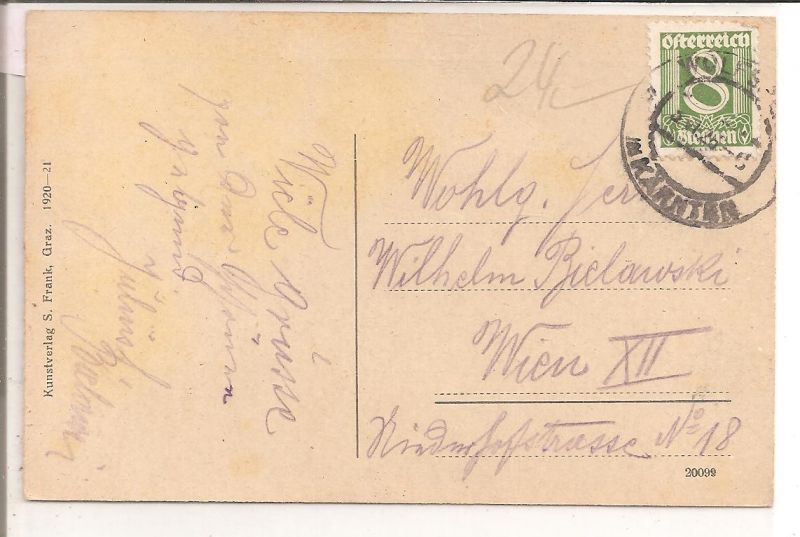 Kunstverlag S. Frank, Graz. 1920—21
Viele Grüsse
von der schönen
Gegend.
Julius
24,-
Österreich
8
Groschen
IM KÄRNTEN
Wohlg. Herr
Wilhelm Bielawski
Wien XII
Niederhofstrasse No 18
20099